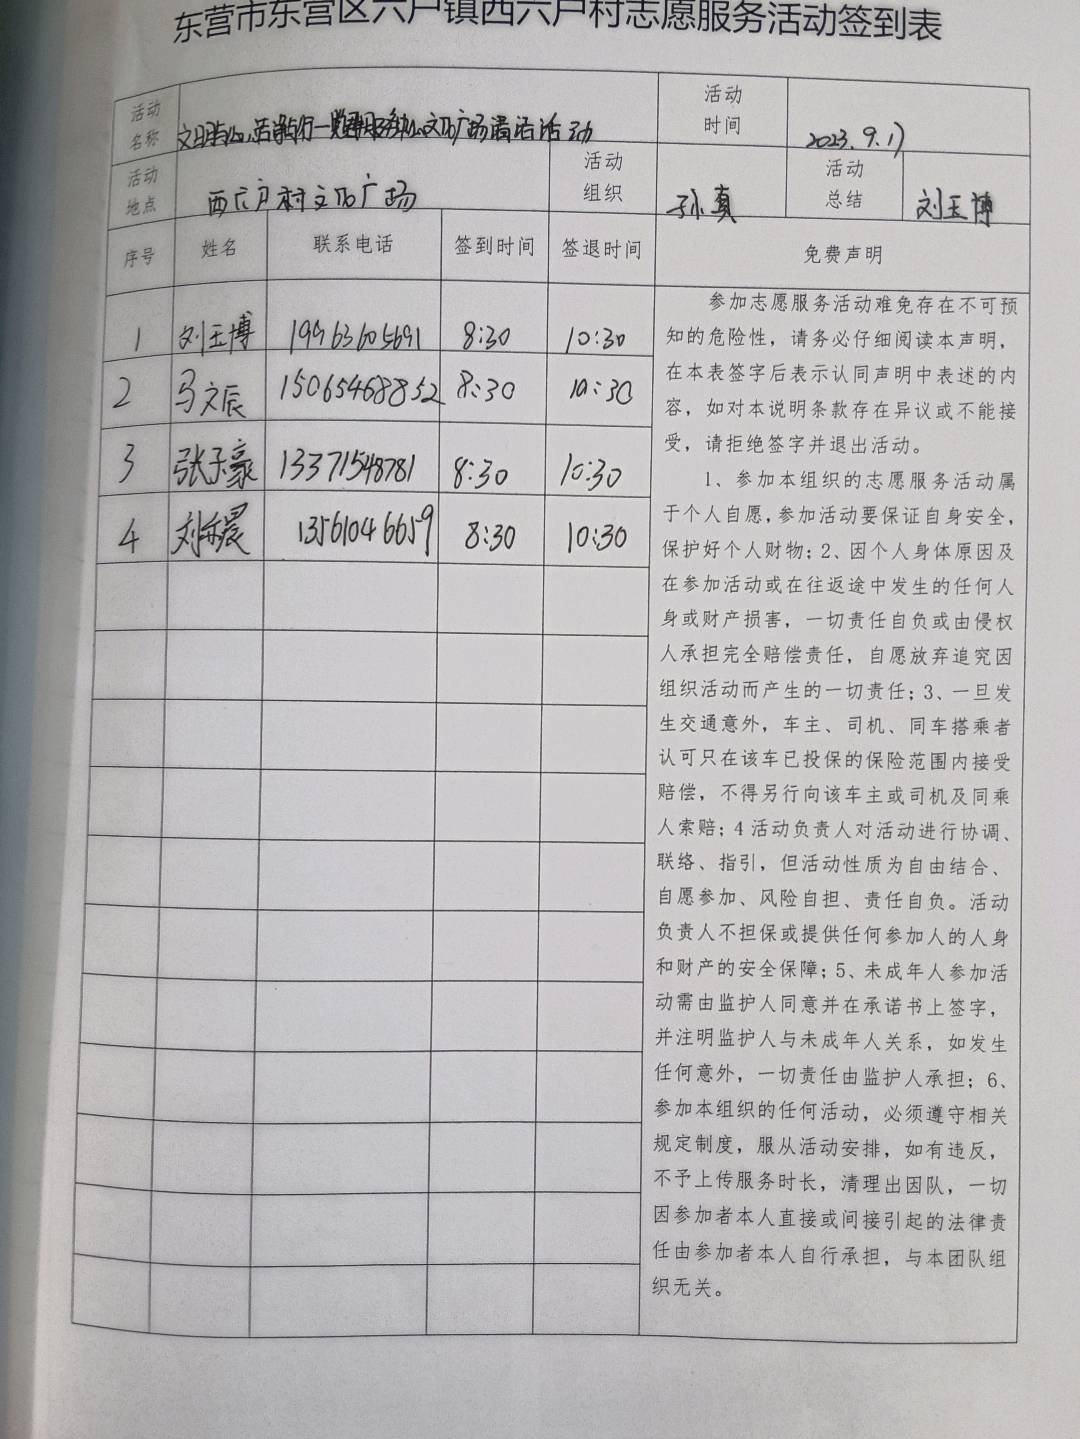 东营市东营区六户镇西六户村志愿服务活动签到表
活动名称 文化广场清洁活动
活动时间 2023.9.17
活动地点 西六户村文化广场
活动组织 孙真
活动总结 刘玉博
序号 姓名 联系电话 签到时间 签退时间 免费声明
1 刘玉博 19963605691 8:30 10:30
2 马文辰 15065468852 8:30 10:30
3 张子豪 13371548781 8:30 10:30
4 刘 晨 13561046659 8:30 10:30
参加志愿服务活动难免存在不可预
知的危险性，请务必仔细阅读本声明，
在本表签字后表示认同声明中表述的内
容，如对本说明条款存在异议或不能接
受，请拒绝签字并退出活动。
1、参加本组织的志愿服务活动属
于个人自愿，参加活动要保证自身安全，
保护好个人财物；2、因个人身体原因及
在参加活动或在往返途中发生的任何人
身或财产损害，一切责任自负或由侵权
人承担完全赔偿责任，自愿放弃追究因
组织活动而产生的一切责任；3、一旦发
生交通意外，车主、司机、同车搭乘者
认可只在该车已投保的保险范围内接受
赔偿，不得另行向该车主或司机及同乘
人索赔；4 活动负责人对活动进行协调、
联络、指引，但活动性质为自由结合、
自愿参加、风险自担、责任自负。活动
负责人不担保或提供任何参加人的人身
和财产的安全保障；5、未成年人参加活
动需由监护人同意并在承诺书上签字，
并注明监护人与未成年人关系，如发生
任何意外，一切责任由监护人承担；6、
参加本组织的任何活动，必须遵守相关
规定制度，服从活动安排，如有违反，
不予上传服务时长，清理出团队，一切
因参加者本人直接或间接引起的法律责
任由参加者本人自行承担，与本团队组
织无关。